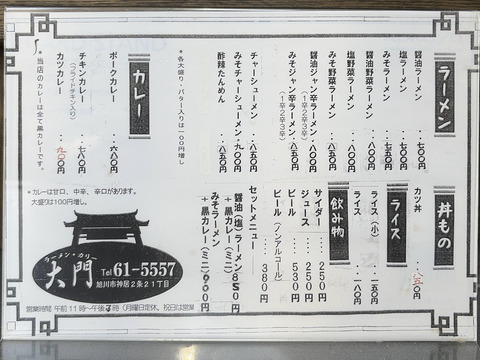 ラーメン
醤油ラーメン・・・七〇〇円
塩ラーメン・・・七〇〇円
みそラーメン・・・七五〇円
醤油野菜ラーメン・・八〇〇円
塩野菜ラーメン・・八〇〇円
みそ野菜ラーメン・・八五〇円
醤油ジャン辛ラーメン・八〇〇円
(1辛2辛3辛)
みそジャン辛ラーメン・八五〇円
(1辛2辛3辛)
チャーシューメン・・八五〇円
みそチャーシューメン・九〇〇円
酢辣たんめん・・八五〇円
*各大盛り・バター入りは一〇〇円増し
カレー
ポークカレー・・六八〇円
チキンカレー・・七八〇円
(フライドチキン入り)
カツカレー
当店のカレーは全て黒カレーです。
*カレーは甘口、中辛、辛口があります。
大盛りは100円増し。
丼もの
カツ丼
ライス
ライス(小)・・一五〇円
ライス・・一八〇円
飲み物
サイダー 250円
ジュース 250円
ビール 530円
ビール(ノンアルコール) 380円
セットメニュー
醤油(塩)ラーメン
+黒カレー(ミニ) 850円
みそラーメン
+黒カレー(ミニ) 900円
ラーメン・カリー
大門
Tel 61-5557
旭川市神居2条21丁目
営業時間 午前11時〜午後7時(月曜日定休、祝日は営業